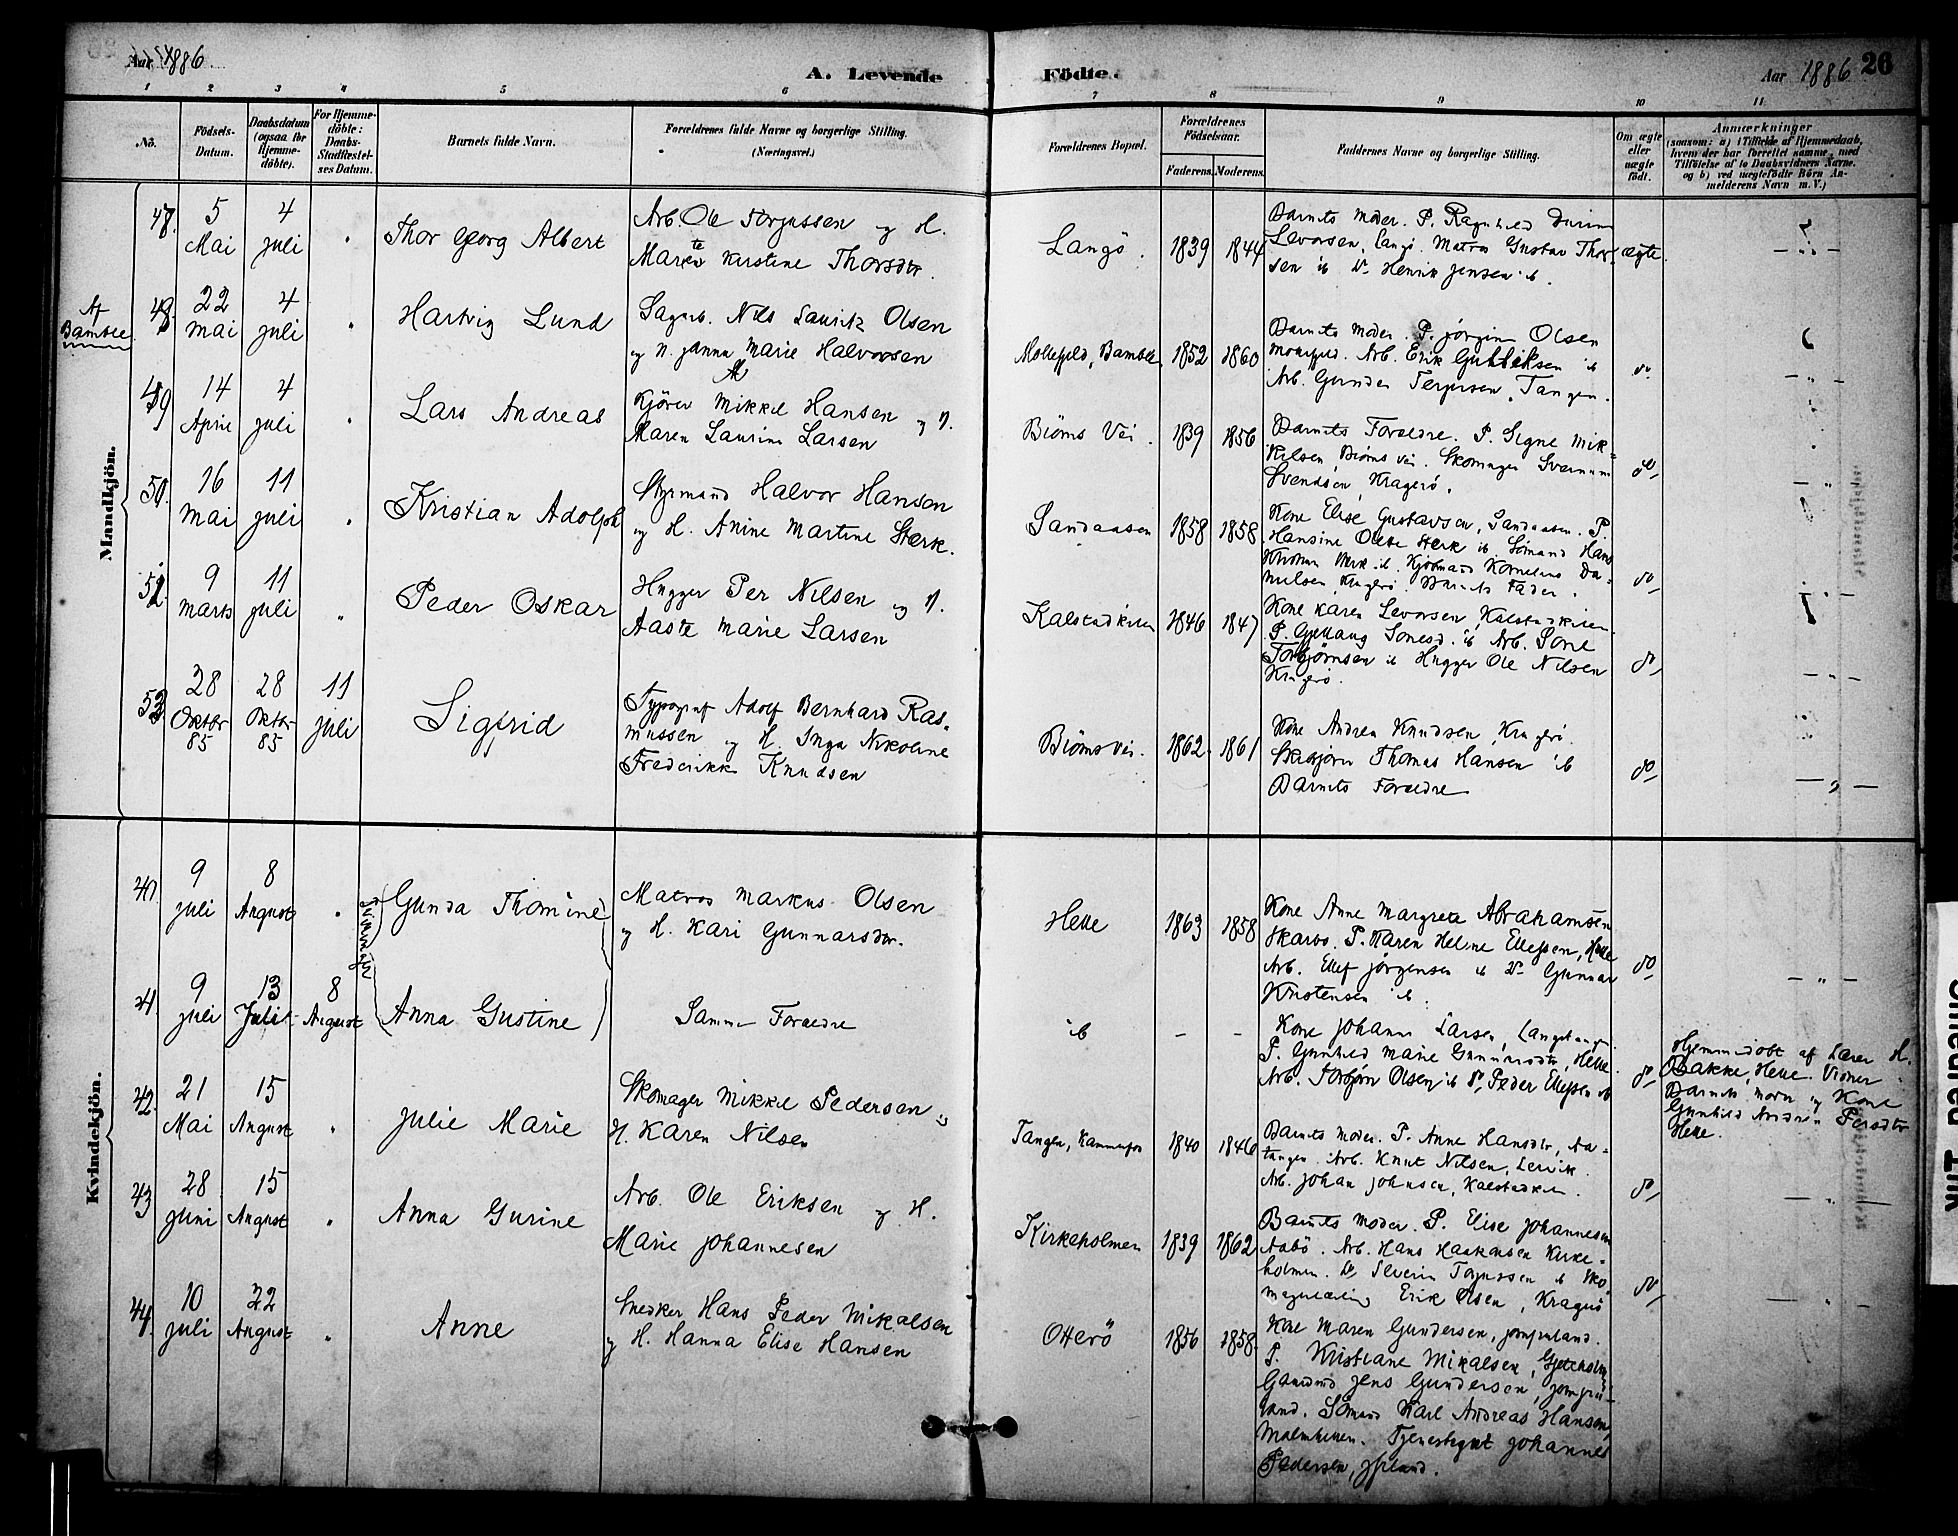 Aar 1886.
A. Levende
Födte.
Aar 1886 26
1 2 3 4 5 6 7 8 9 10 11
No.
Födsels-
Datum.
Daabsdatum
(ogsaa for
Hjemme-
döbte).
For Hjemme-
döbte:
Daabs-
Stadfæstel-
ses Datum.
Barnets fulde Navn.
Forældrenes fulde Navne og borgerlige Stilling.
(Næringsvei.)
Forældrenes Bopæl.
Forældrenes
Födselsaar.
Faderens. Moderens.
Faddernes Navne og borgerlige Stilling.
Om ægte
eller
uægte
födt.
Anmærkninger
(saasom: a) i Tilfælde af Hjemmedaab,
hvem der har forrettet samme, med
Tilföielse af to Daabsvidners Navne.
og b) ved uægtefödte Börn An-
melderens Navn m. V.)
Mandkjön.
47.
5
Mai
4
juli
Thor Georg Albert
Arb. Ole Torjussen og H.
Kirstine Thorsdtr.
Langö.
1839 1844
Barnets Moder. P. Ragnhild
Levorsen, Langö. Matros Gustav Thor-
sen ib Do Henrik Jensen ib.
ægte.
Af
Bamble
48.
22
Mai
4
juli
Hartvig Lund
Sagarb. Nils Laurits Olsen
og H. Janna Marie Halvorsen
Bamble
1852 1860
Barnets Moder. P. Jörgine Olsen
Arb. Erik Gulliksen ib
Arb. Gunder Terjesen, Tangen.
do.
49
14
April
4
juli
Lars Andreas
Kjörer Mikkel Hansen og H.
Maren Laurine Larsen
Biöms Vei.
1839 1856
Barnets Forældre. P. Signe Mik-
kelsen, Biöms Vei. Skomager
Svendsen, Kragerö.
do
50.
16
Mai
11
juli
Kristian Adolph
Styrmand Halvor Hansen
og H. Anine Martine Stærk.
Sandaasen
1858 1858
Kone Elise Gustavsen, Sandaasen. P.
Hansine Stærk ib. Sömand Hans
Kragerö. Barnets Fader.
do
51.
9
Marts
11
juli
Peder Oskar
Hugger Per Nilsen og H.
Aaste Marie Larsen
Kalstadkilen
1846 1847
Kone Karen Levorsen, Kalstadkilen.
P. ib Arb. Sone
Torbjörnsen ib Hugger Ole Nilsen
Kragerö.
do
52.
28
Oktbr
85
28
Oktbr
85
11
juli
Sigfrid
Typograf Adolf Bernhard Ras-
mussen og H. Inga Nikoline
Frederikke Knudsen
Biöms Vei.
1862 1861
Kone Andrea Knudsen, Kragerö.
Thomas Hansen ib
Barnets Forældre
do
Kvindekjön.
40.
9
juli
8
August
Gunda Thomine
Matros Markus Olsen
og H. Kari Gunnarsdtr.
Helle
1863 1858
Kone Anne Margrete Abrahamsen
P. Karen Helene Ellefsen, Helle
Arb. Ellef Jörgensen ib Do Gunnar
Kristensen ib.
do
41.
9
juli
13
Juli
8
August
Anna Gustine
Samme Forældre
ib
- -
Kone Johanne Larsen, Langetangen
P. Gunhild Marie Gunnarsdtr, Helle.
Arb. Torbjörn Olsen ib Do Peder Ellefsen ib
do
Hjemmedöbt af Lærer H.
Bakke, Helle. Vidner:
Barnets moder og Kone
Gunhild Andrea Persdtr
Helle.
42.
21
Mai
15
August
Julie Marie
Skomager Mikkel Pedersen og
H. Karen Nilsen
Tangen, Kammerfos
1840 1846
Barnets Moder. P. Anne Hansdtr, Aa-
tangen. Arb. Knut Nilsen,
Arb. Johan Johnsen, Kalstadkilen.
do
43
28
juni
15
August
Anna Gurine
Arb. Ole Eriksen og H.
Marie Johannesen
Kirkeholmen
1839 1862
Barnets Moder. P. Elise Johannesen
Aabö. Arb. Hans Haakensen Kirke-
holmen. Do Severin Torjussen ib Sko-
magerlærling Erik Olsen, Kragerö
do
44.
10
juli
22
August
Anne
Snedker Hans Peder Mikalsen
og H. Hanna Elise Hansen
Otterö
1856 1858.
Kone Maren Gundersen, Jomfruland.
P. Kristiane Mikalsen,
Jens Gundersen, Jomfru-
land. Sömand Karl Andreas Hansen,
Johannes
Pedersen,